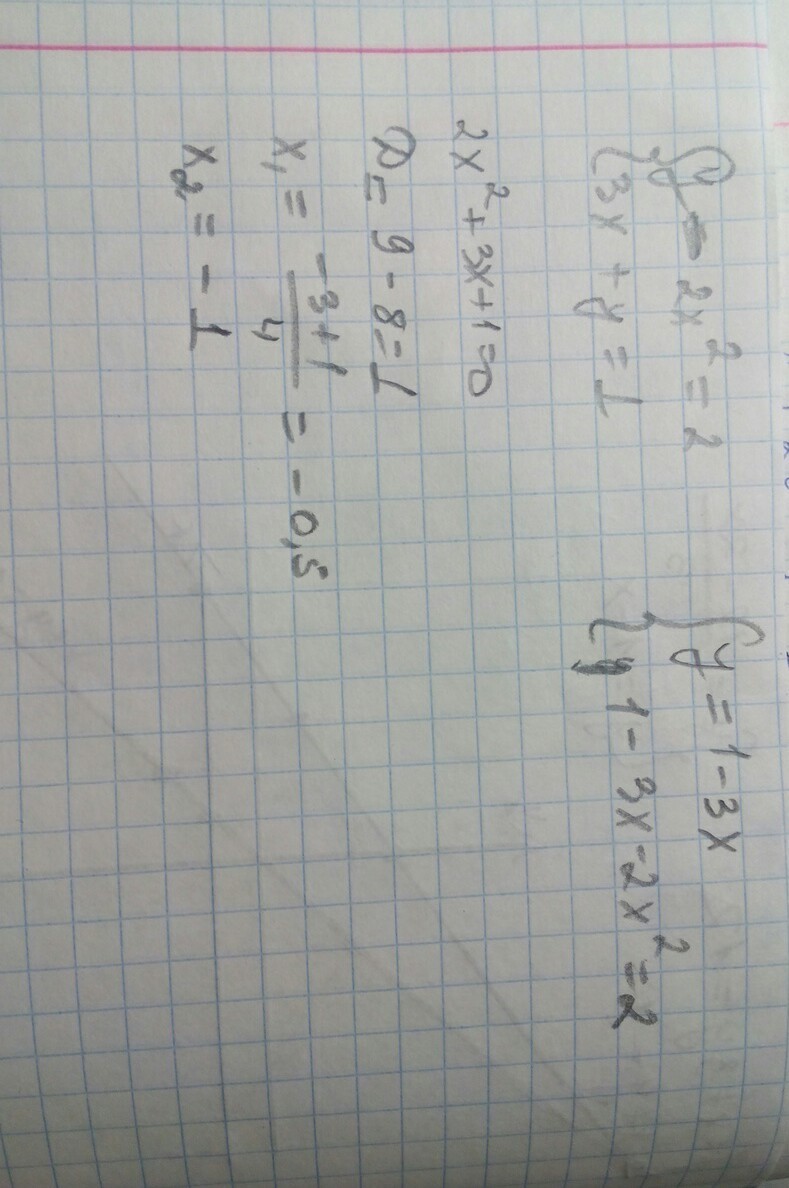 y - 2x² = 2
3x + y = 1
y = 1 - 3x
1 - 3x - 2x² = 2
2x² + 3x + 1 = 0
D = 9 - 8 = 1
x₁ = (-3+1)/4 = -0,5
x₂ = -1